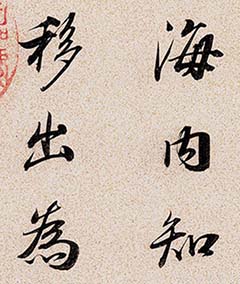 海内知
移出為